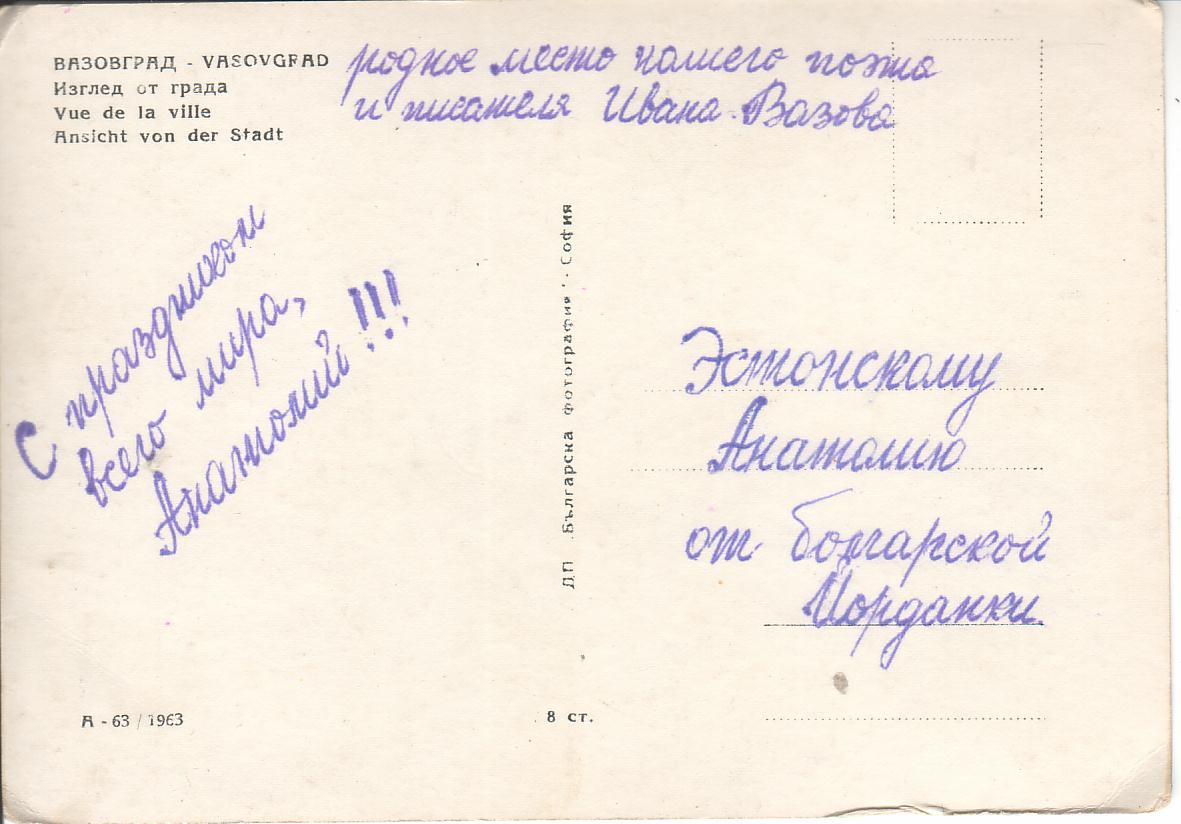 ВАЗОВГРАД - VASOVGRAD
Изглед от града
Vue de la ville
Ansicht von der Stadt
родное место нашего поэта
и писателя Ивана Вазова
С праздником
всего мира,
Анатолий!!!
ДП "Българска фотография" - София
Эстонскому
Анатолию
от болгарской
Йорданки.
А - 63 / 1963
8 ст.